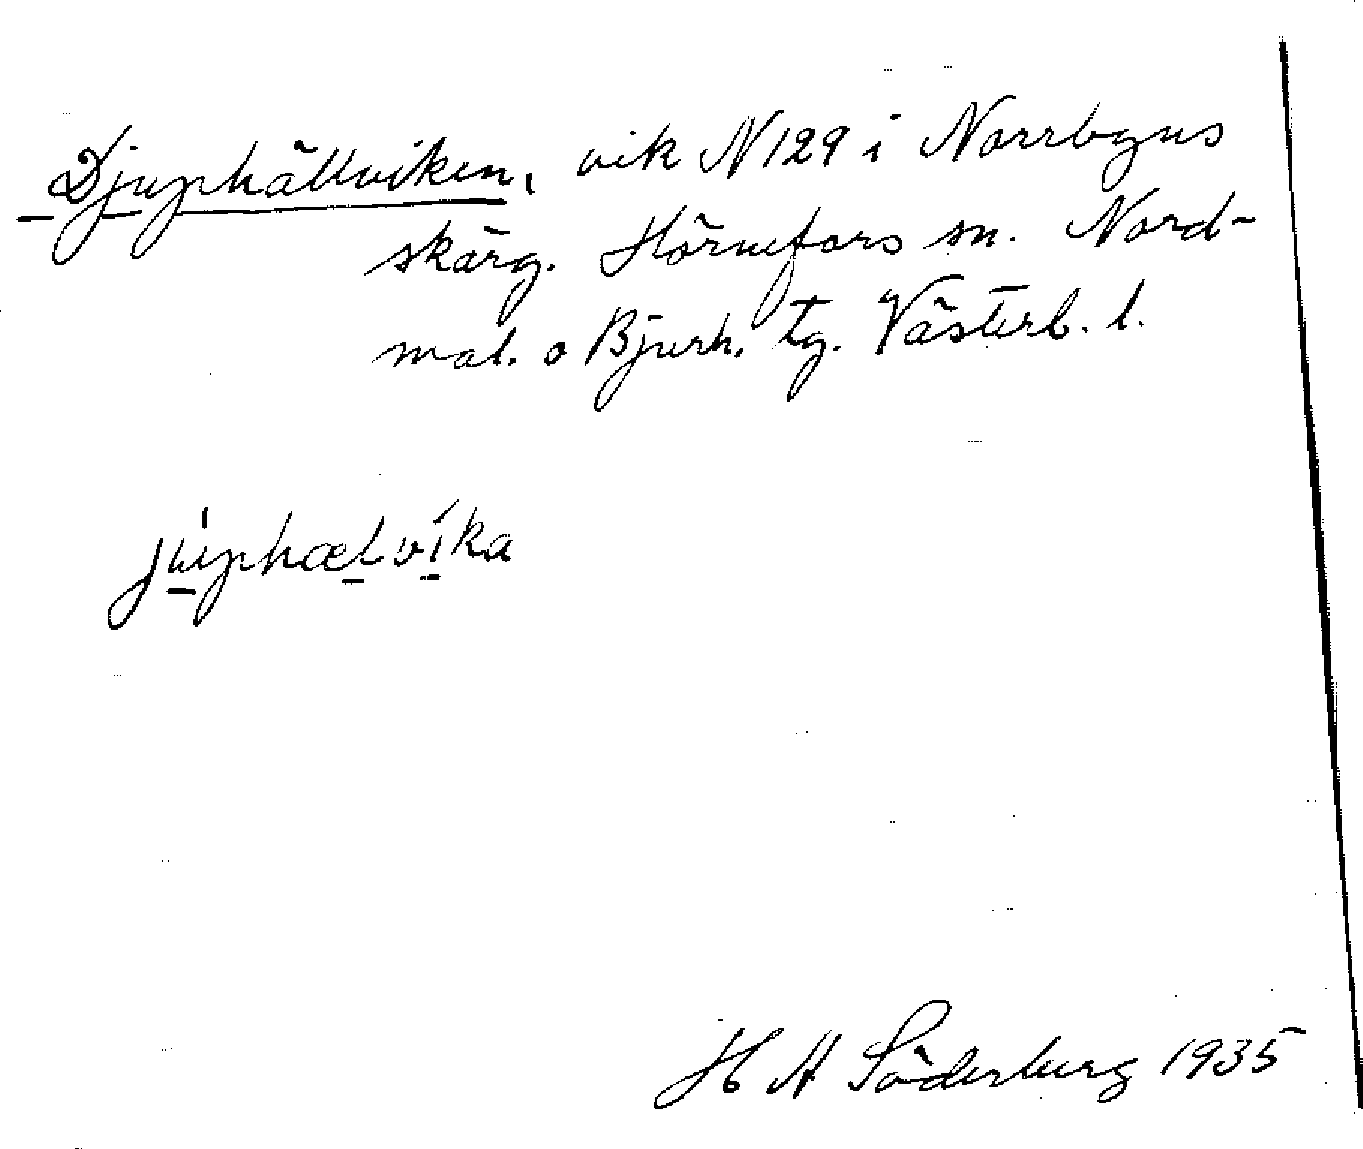 Djuphällviken, vik N129 i Norrbyns
skärg. Hörnefors sn. Nord-
mal. o Bjurh. tg. Västerb. l.
juphælvika
H A Söderberg 1935